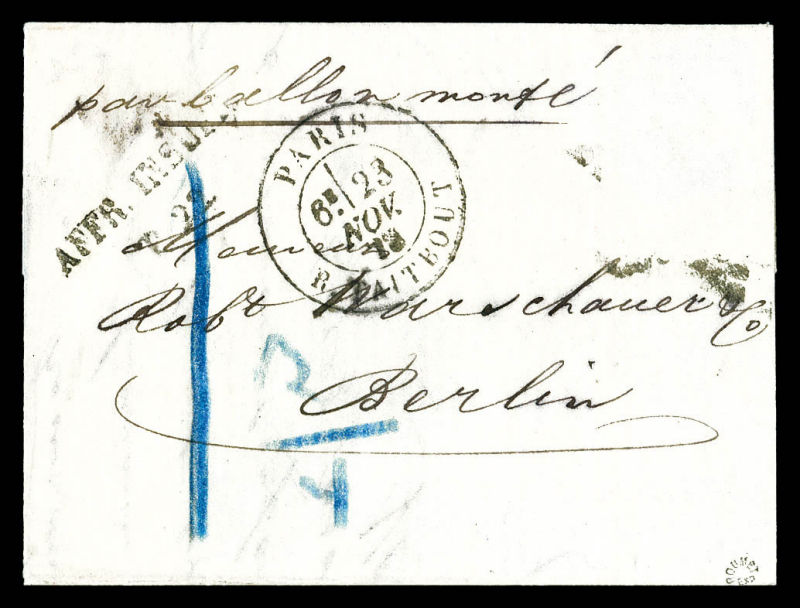 par ballon monté
AFFR. INSUF.
P. 22
PARIS
6E/ 23
NOV
R. TAITBOUT
Messieurs
Robt Warschauer & Co
Berlin
3
4
ROUMET
EXP